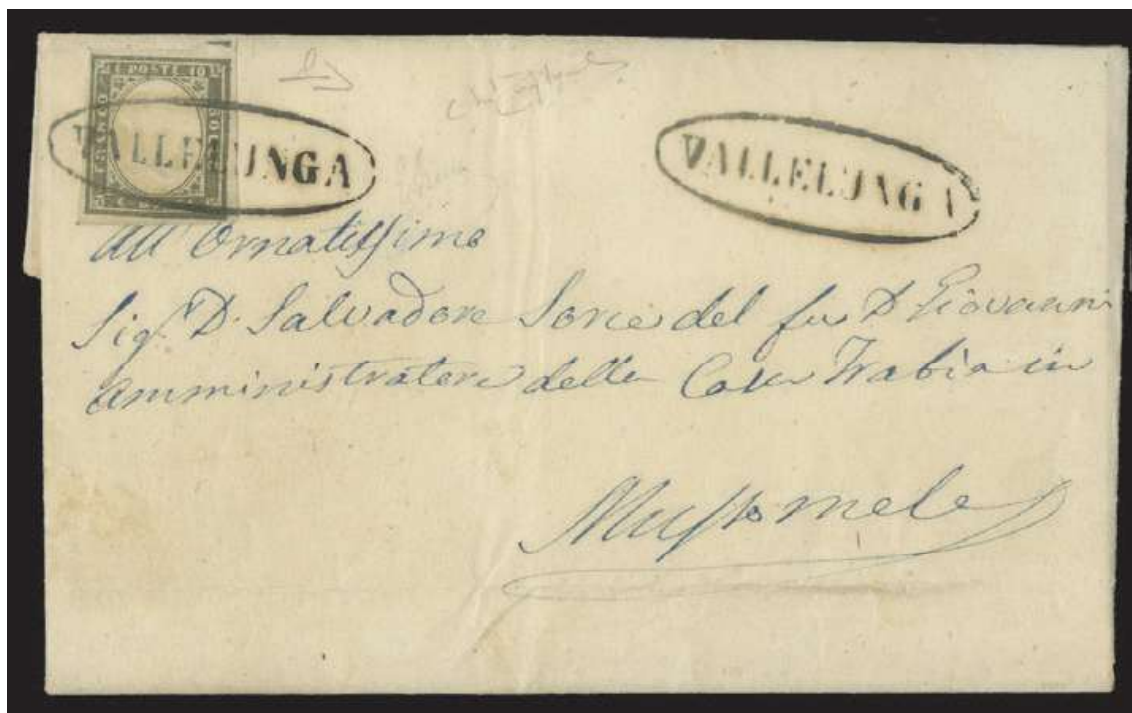 C. POSTE 10
FRANCO
BOLLO
VALLELUNGA
VALLELUNGA
All' Ornatissimo
Sig.r D. Salvadore Sorce del fu D Giovanni
Amministratore della Casa Trabia in
Mussomele